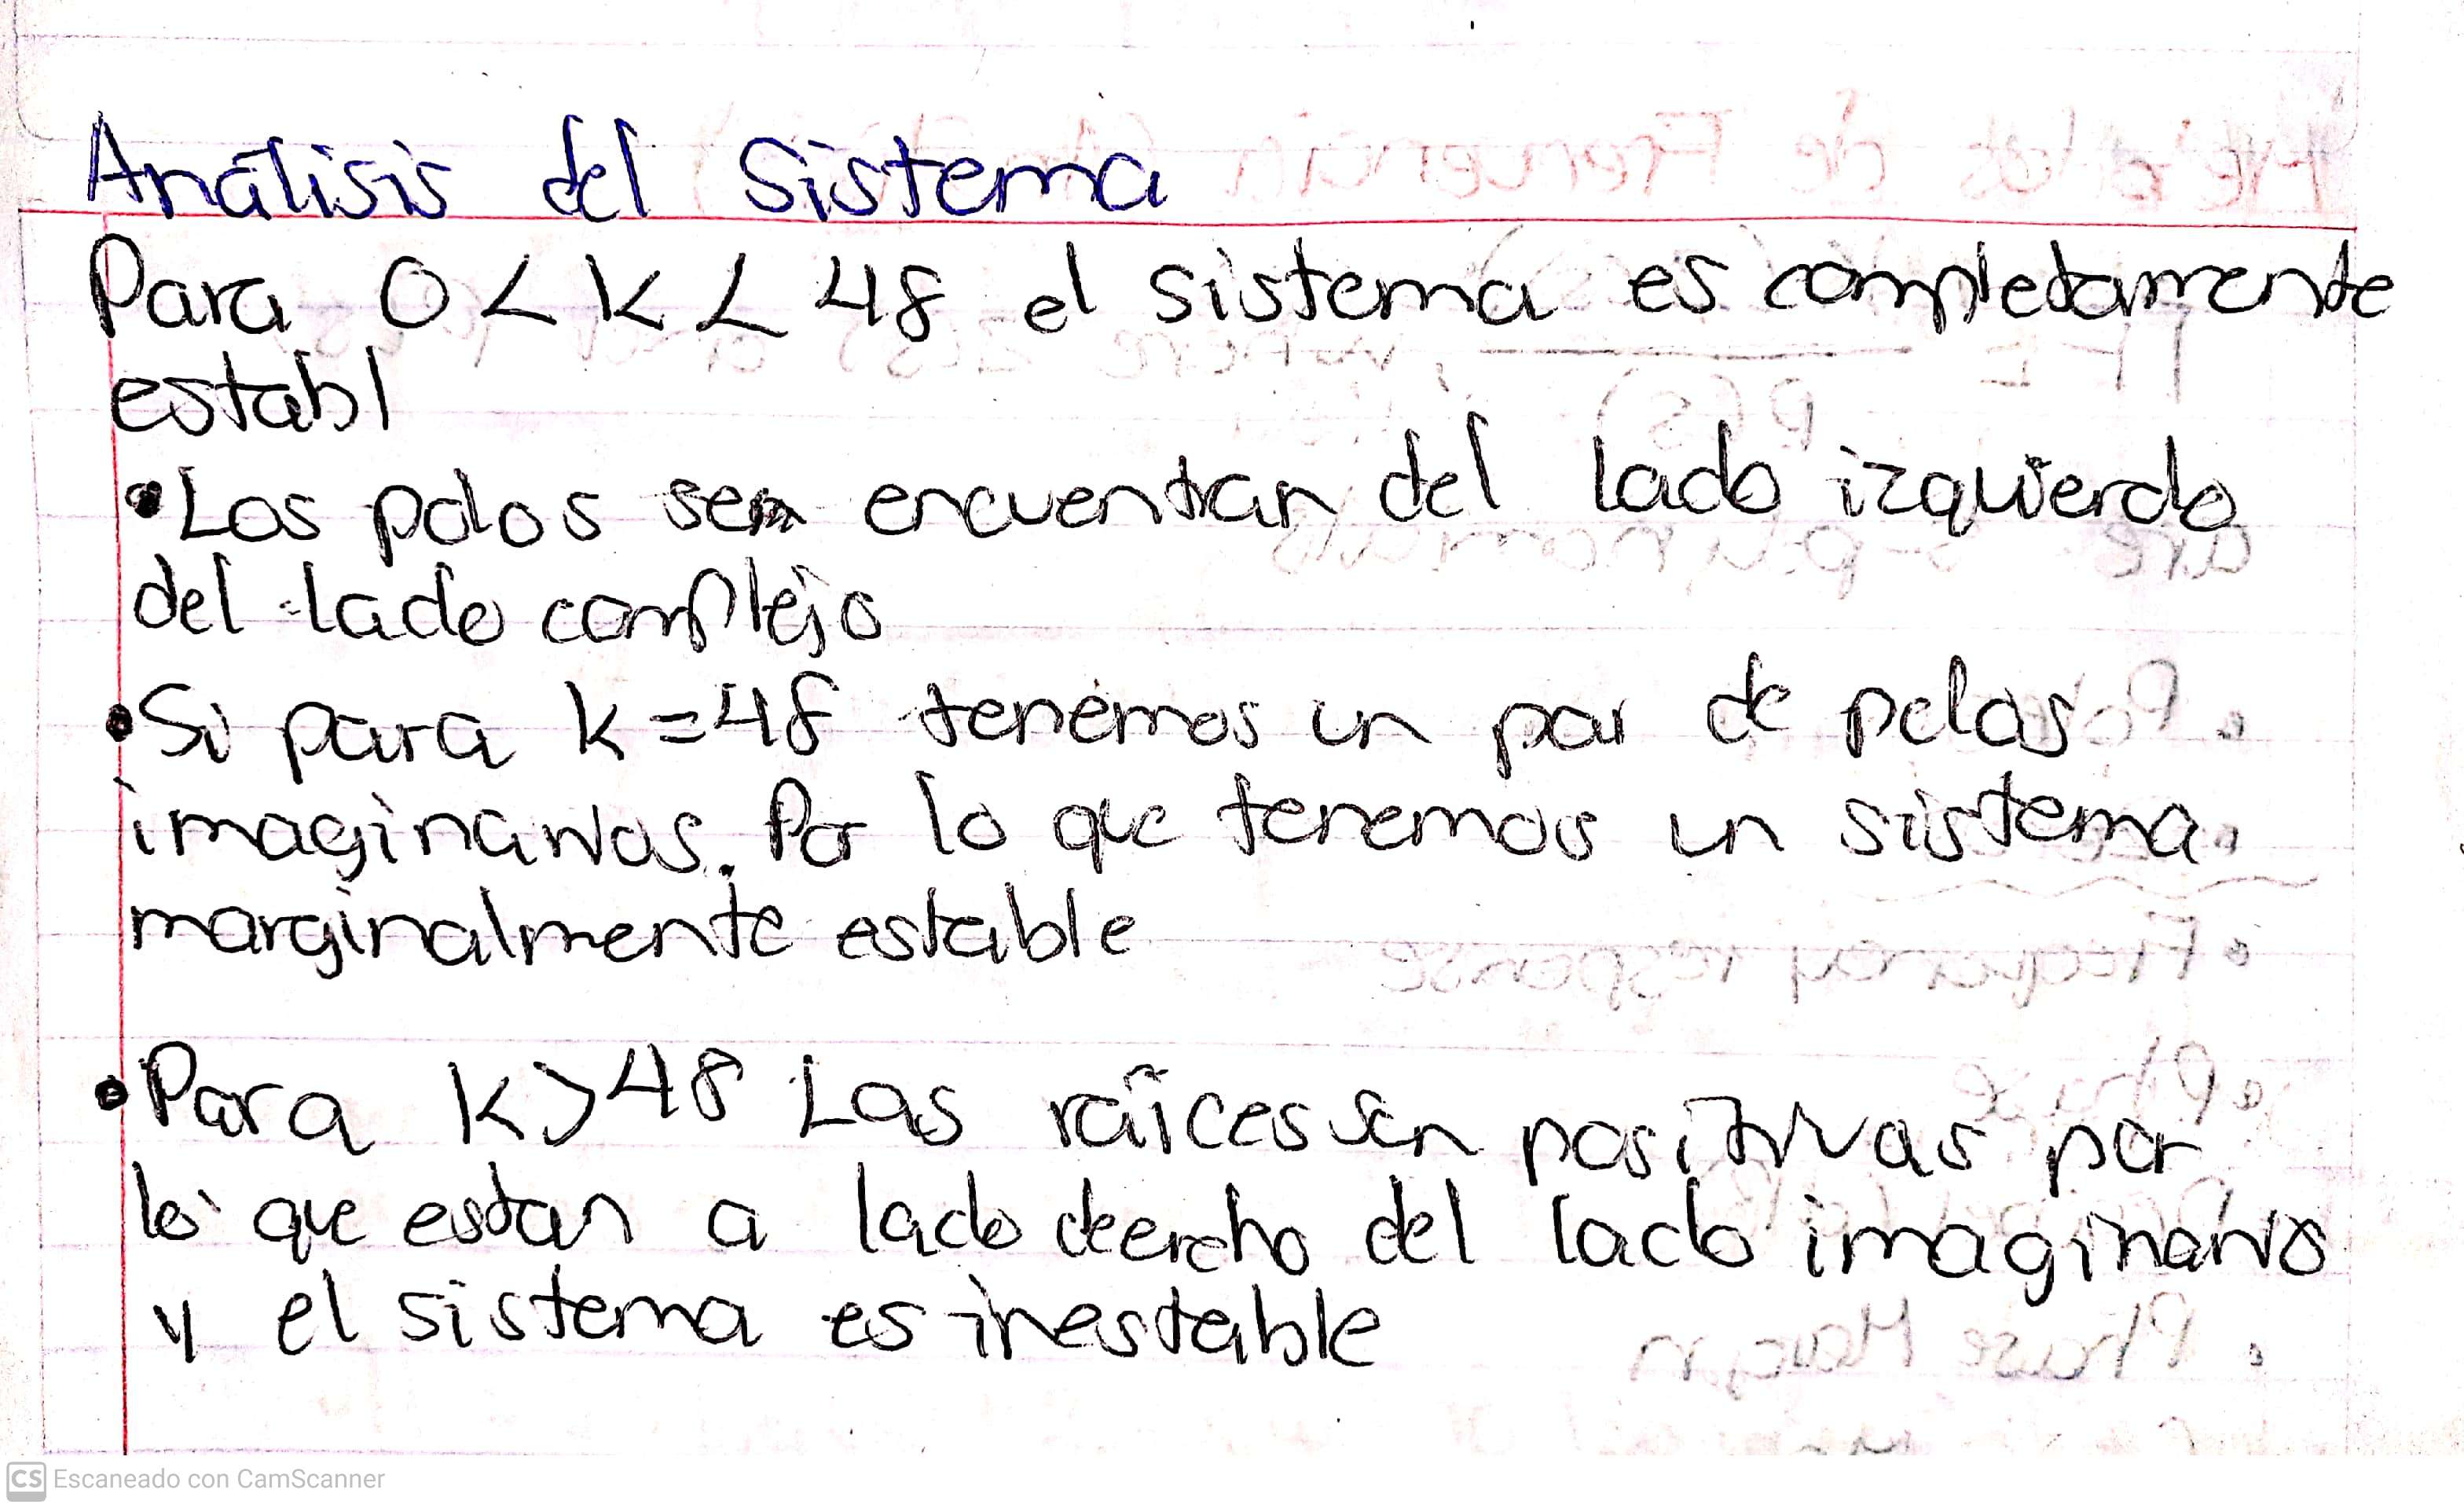 Análisis del Sistema
Para 0 < k < 48 el sistema es completamente
establ
•Los polos se encuentran del lado izquierdo
del lado complejo
•Si para k = 48 tenemos un par de polos
imaginarios. Por lo que tenemos un sistema
marginalmente estable
•Para k > 48 Las raíces son positivas por
lo que estan a lado deerecho del lado imaginario
y el sistema es inestable
CS Escaneado con CamScanner